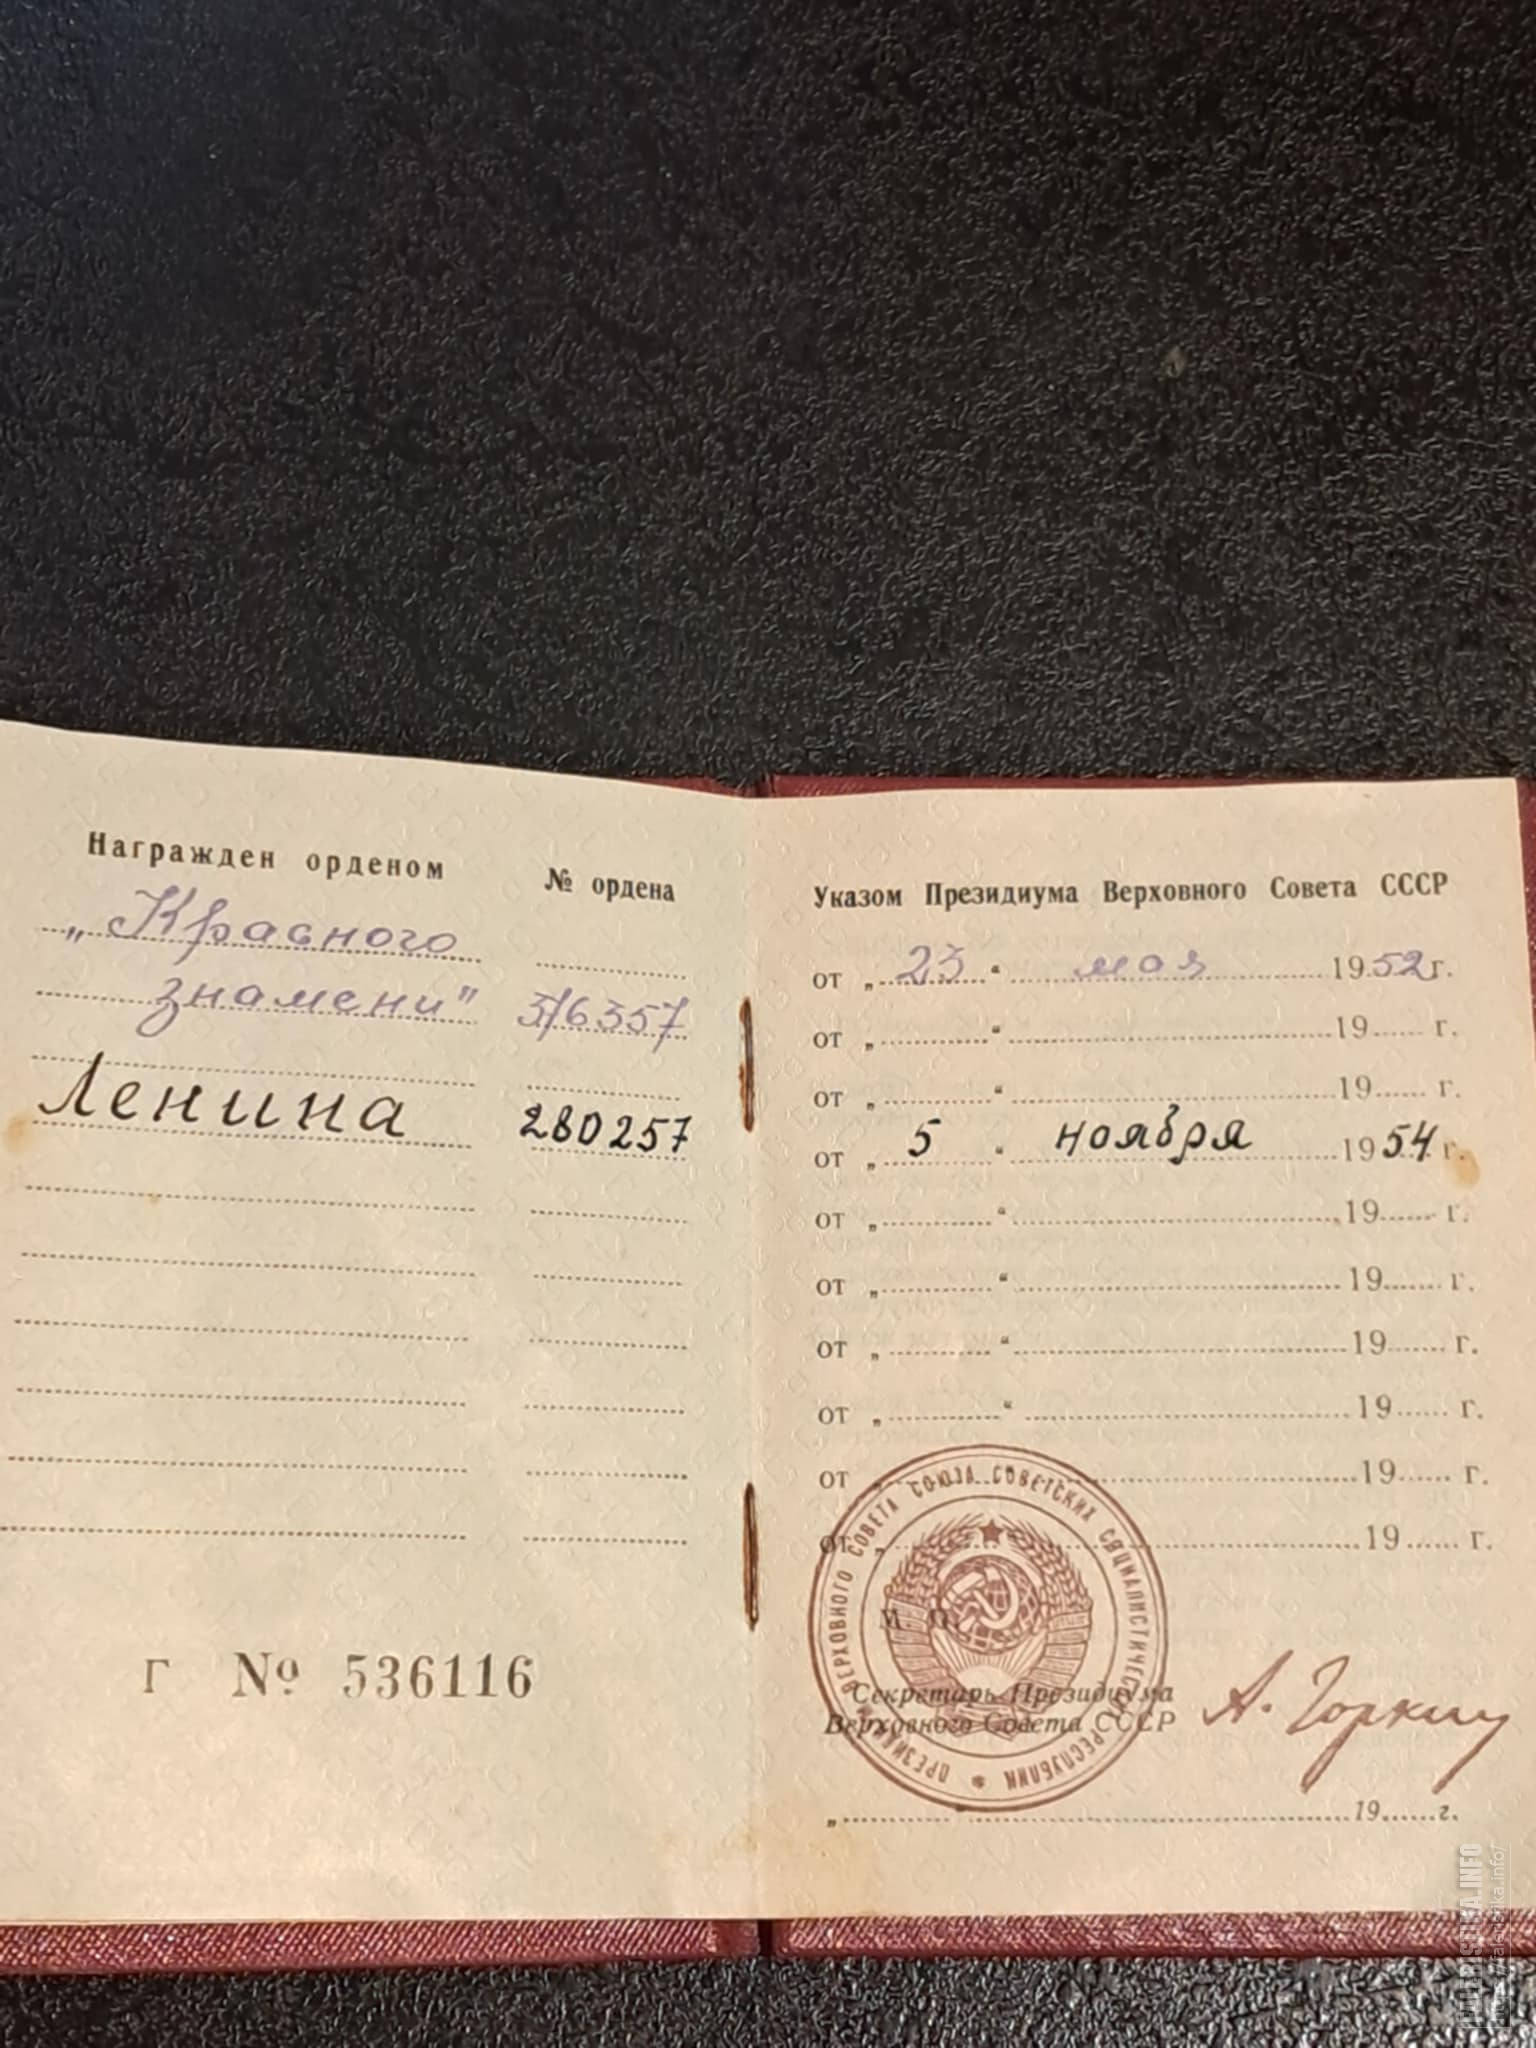 Награжден орденом № ордена
„Красного
знамени" 516357
Ленина 280257
Г № 536116
Указом Президиума Верховного Совета СССР
от „23“ мая 1952 г.
от „ “ 19 г.
от „ “ 19 г.
от „5“ ноября 1954 г.
от „ “ 19 г.
от „ “ 19 г.
от „ “ 19 г.
от „ “ 19 г.
от „ “ 19 г.
от „ “ 19 г.
М. П.
Секретарь Президиума
Верховного Совета СССР А. Горкин
„ 19 г.
ПРЕЗИДИУМ ВЕРХОВНОГО СОВЕТА СОЮЗА СОВЕТСКИХ СОЦИАЛИСТИЧЕСКИХ РЕСПУБЛИК
FALERISTIKA.INFO
https://faleristika.info/